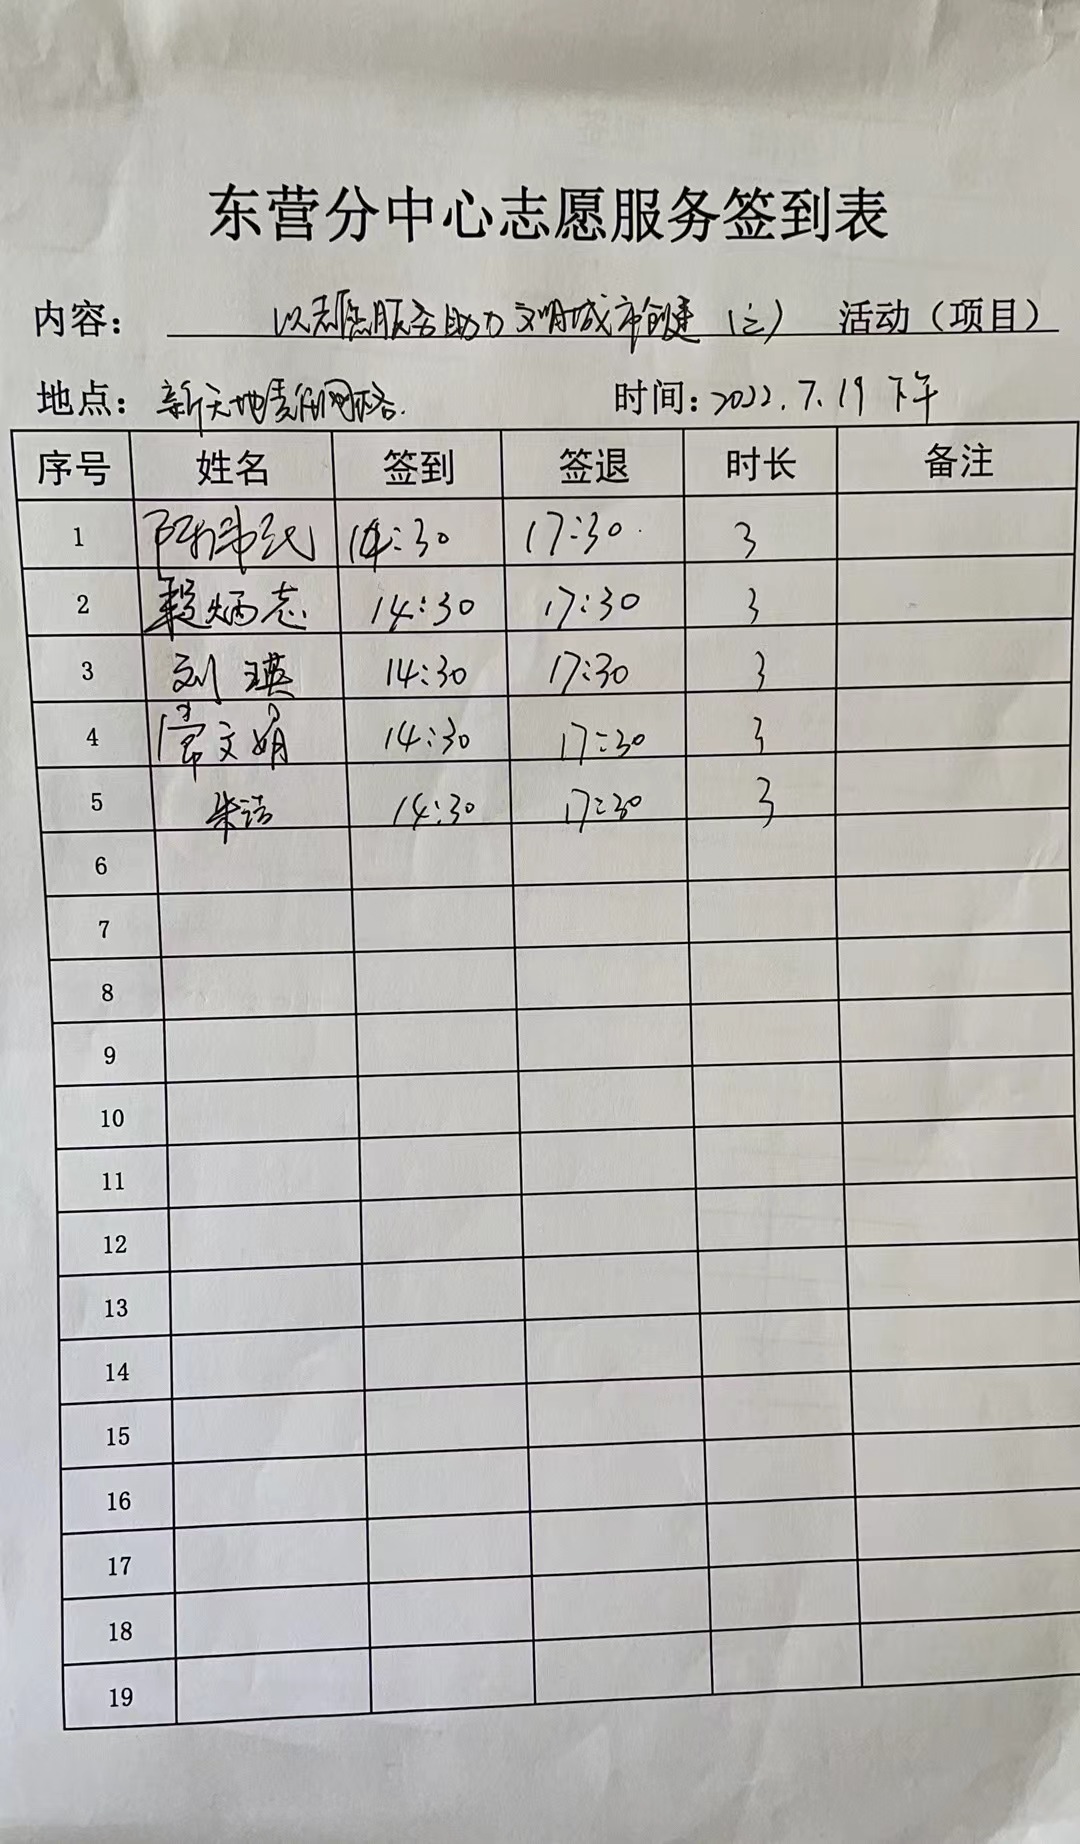 东营分中心志愿服务签到表
内容： 以志愿服务助力文明城市创建（三） 活动（项目）
地点：新天地责任网格. 时间：2022.7.19 下午
序号 姓名 签到 签退 时长 备注
1 14:30 17:30 3
2 炳志 14:30 17:30 3
3 刘瑛 14:30 17:30 3
4 常文娟 14:30 17:30 3
5 朱洁 14:30 17:30 3
6
7
8
9
10
11
12
13
14
15
16
17
18
19